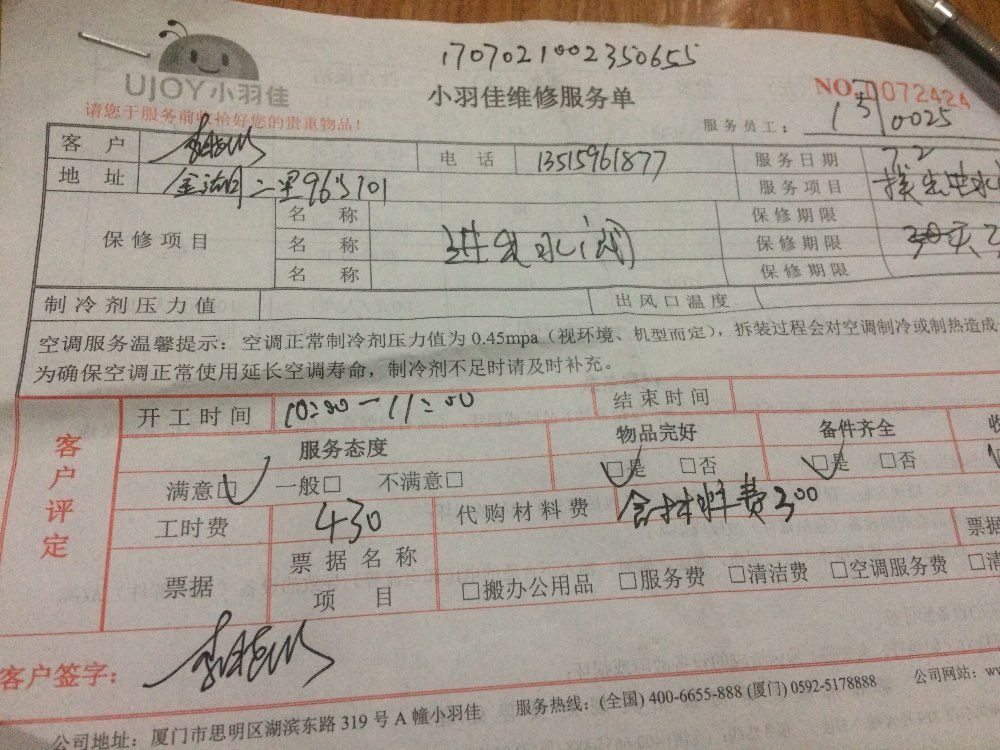 1707021002350655
UJOY小羽佳
小羽佳维修服务单
NO. 0072424
请您于服务前收拾好您的贵重物品!
服务员工: 0025
客 户
电 话 13515961877
服务日期 7.2
地 址 二里96号701
服务项目
保修项目
名 称
保修期限
名 称 进水阀
保修期限
名 称
保修期限
制冷剂压力值
出风口温度
空调服务温馨提示:空调正常制冷剂压力值为 0.45mpa(视环境、机型而定),拆装过程会对空调制冷或制热造成
为确保空调正常使用延长空调寿命,制冷剂不足时请及时补充。
客户评定
开工时间 10:00-11:00
结束时间
服务态度
物品完好
备件齐全
满意□ 一般□ 不满意□
□是 □否
□是 □否
工时费 430
代购材料费 含材料费300
票据
票据名称
项 目
□搬办公用品 □服务费 □清洁费 □空调服务费
票据
客户签字:
公司地址:厦门市思明区湖滨东路 319 号 A 幢小羽佳
服务热线:(全国) 400-6655-888 (厦门) 0592-5178888
公司网站: